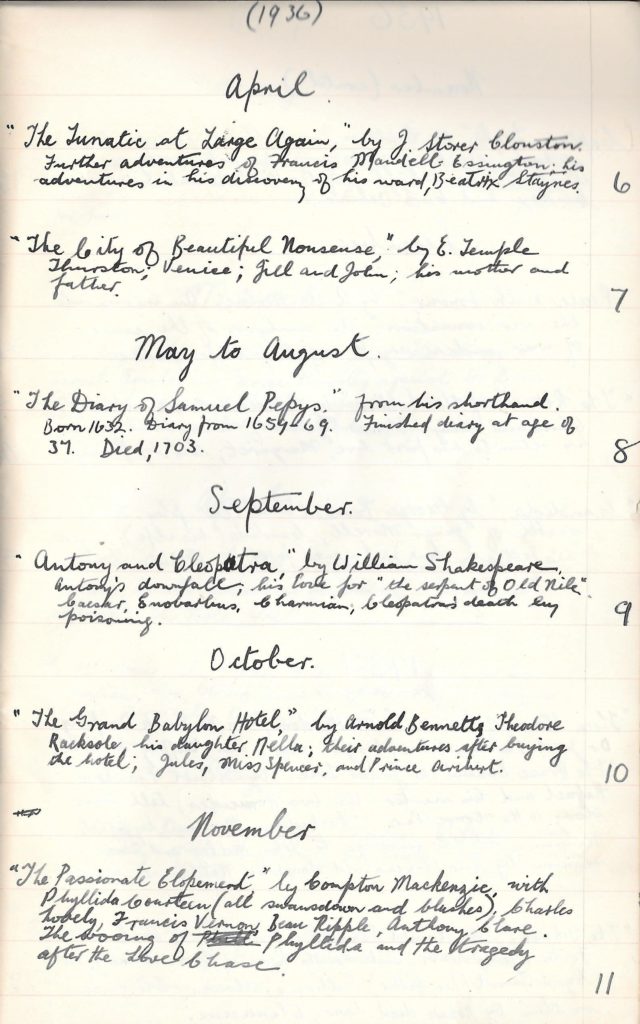 (1936)
April.
"The Lunatic at Large Again," by J. Storer Clouston.
Further adventures of Francis Mandell-Essington: his
adventures in his discovery of his ward, Beatrix Staynes.
6
"The City of Beautiful Nonsense," by E. Temple
Thurston; Venice; Jill and John; his mother and
father.
7
May to August.
"The Diary of Samuel Pepys." from his shorthand.
Born 1632. Diary from 1659-69. Finished diary at age of
37. Died, 1703.
8
September.
"Antony and Cleopatra," by William Shakespeare.
Antony's downfall; his love for "the serpent of Old Nile"
Caesar, Enobarbus, Charmian, Cleopatra's death by
poisoning.
9
October.
"The Grand Babylon Hotel," by Arnold Bennett; Theodore
Racksole, his daughter Nella; their adventures after buying
the hotel; Jules, Miss Spencer, and Prince Aribert.
10
November
"The Passionate Elopement," by Compton Mackenzie, with
Phyllida Courteen (all swansdown and blushes), Charles
Lovely, Francis Vernon, Beau Ripple, Anthony Clare.
The wooing of Phyllida and the tragedy
after the Love Chase.
11